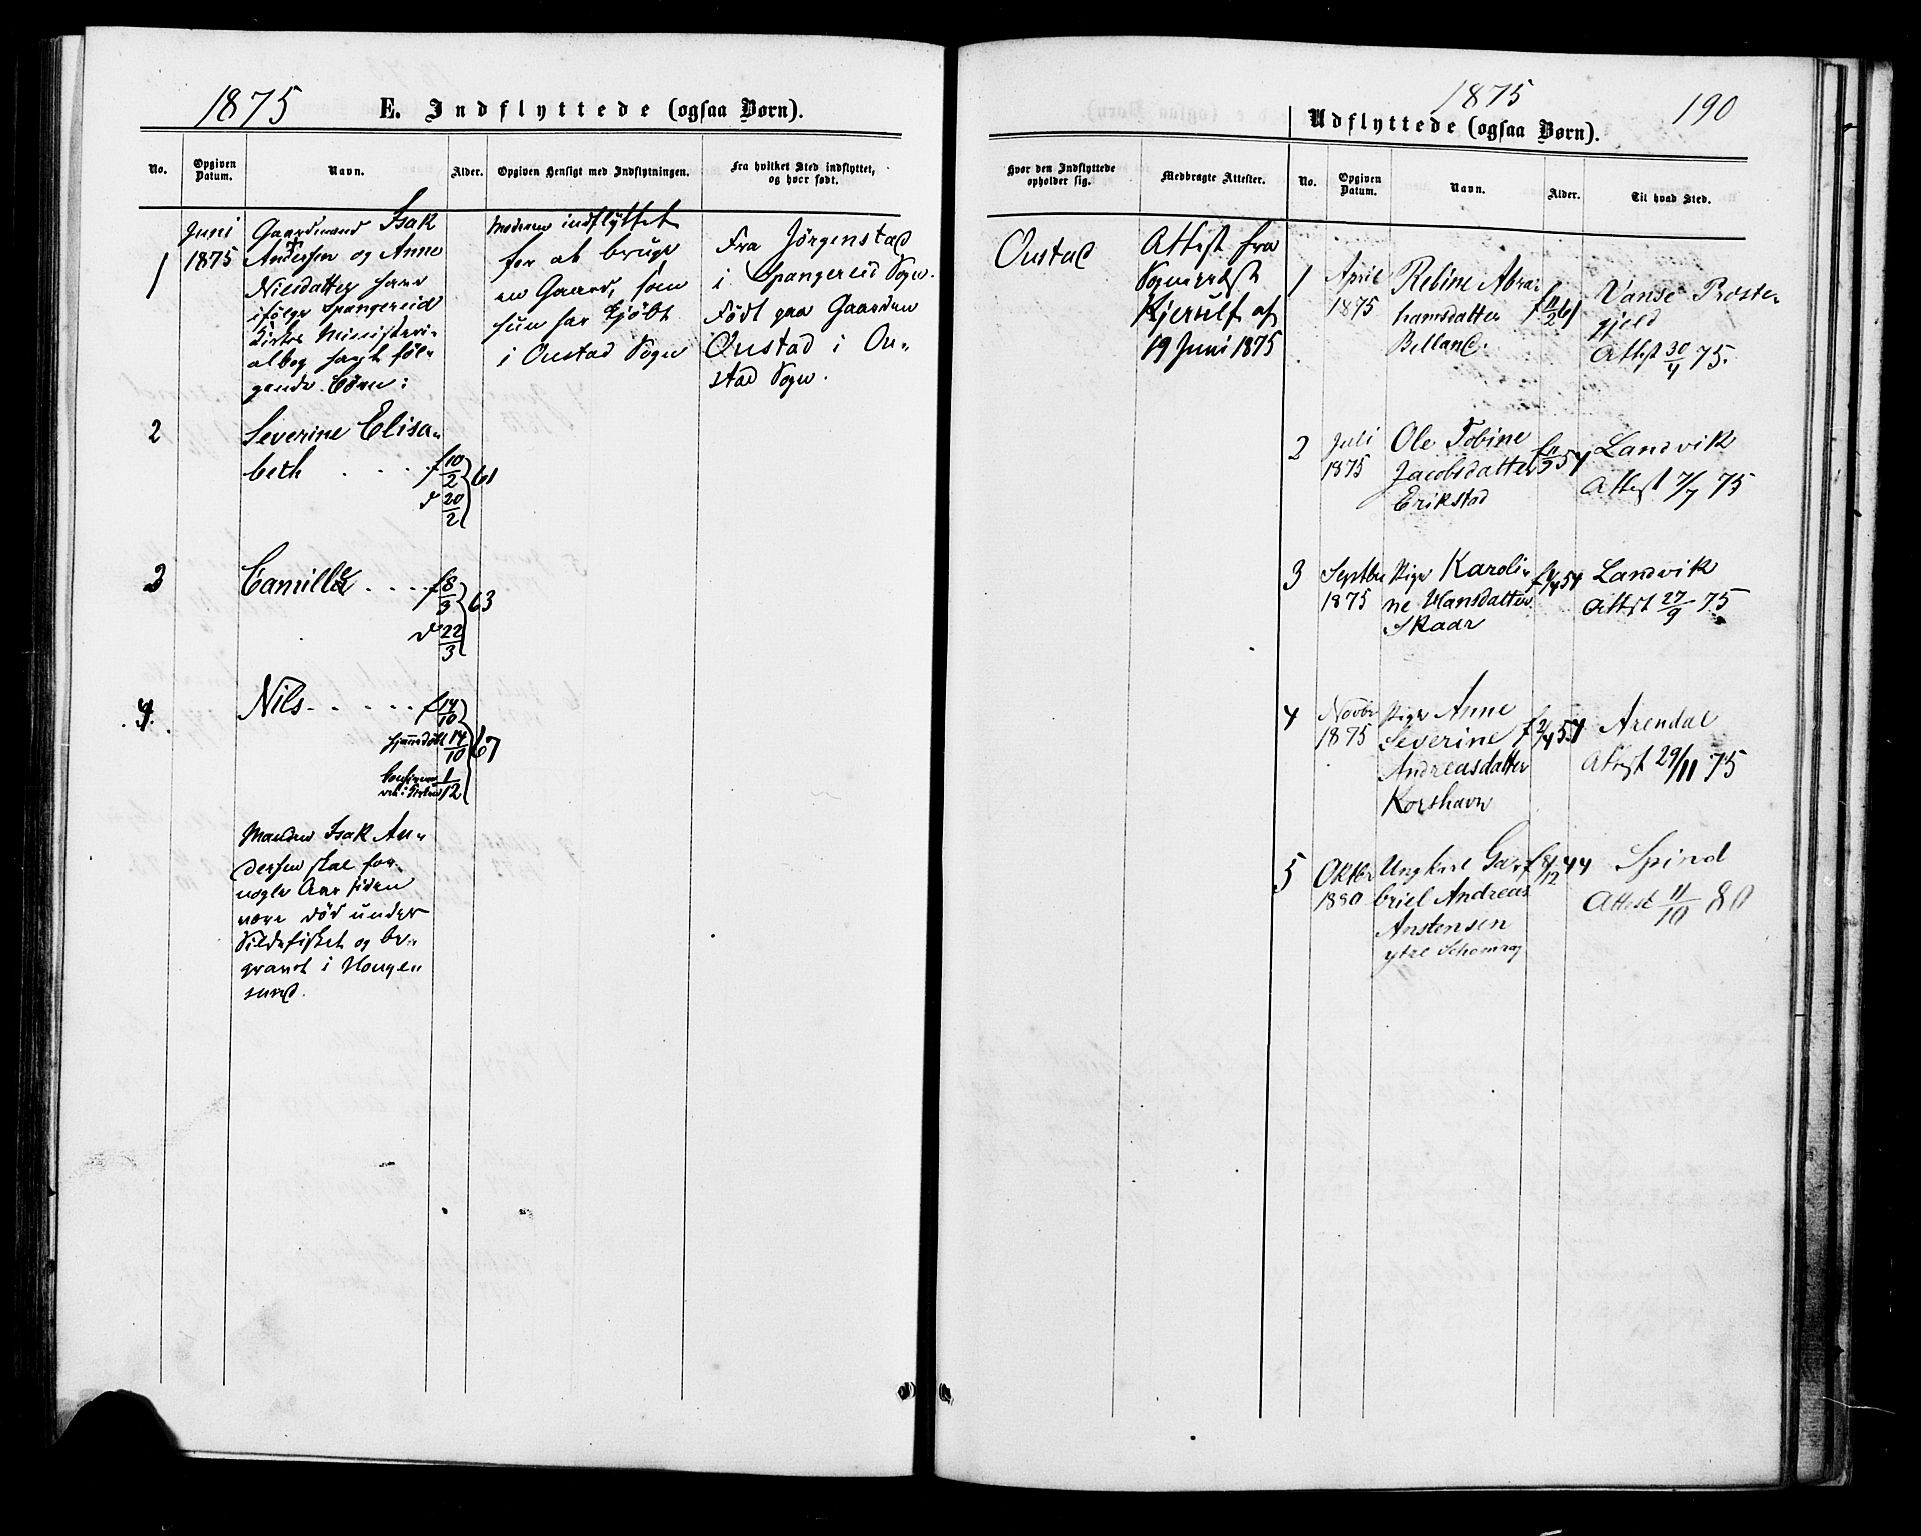 1875
E. Indflyttede (ogsaa Børn).
No.
Opgiven Datum.
Navn.
Alder.
Opgiven Hensigt med Indflytningen.
Fra hvilket Sted indflyttet, og hvor født.
1
Juni
1875
Gaardmand Isak
Andersen og Anne
Nilsdatter have
ifølge Spangereid
Kirkes Ministeri-
albog havt føl-
gende Børn:
Moderen indflyttet
for at bruge
en Gaard, som
hun har kjøbt
i Oustad Sogn
Fra Jörgenstad
i Spangereid Sogn.
Födt paa Gaarden
Oustad i Ou-
stad Sogn.
2
Severine Elisa-
beth . . . . f 10/2
d 20/2
61
3
Camilla . . . . f 8/3
d 22/3
63
4.
Nils . . . . . f 14/10
hjemmedøbt 14/10
1/12
67
Manden Isak An-
dersen skal for
nogle Aar siden
være död under
Sildefisket og be-
gravet i Hougen
sund.
1875
190
Udflyttede (ogsaa Børn).
Hvor den Indflyttede opholder sig.
Medbragte Attester.
No.
Opgiven Datum.
Navn.
Alder.
Til hvad Sted.
Oustad
Attest fra
Sogneprest
Kjerulf af
19 Juni 1875
1
April
1875
Rebine Abra-
hamsdatter
Belland.
f 11/2 61
Vanse Præste-
gjeld
Attest 30/4 75.
2
Juli
1875
Ole Tobine
Jacobsdatter
Erikstad
Landvik
Attest 7/7 75
3
Septbr
1875
Pige Karoli-
ne Hansdatter
Skaar
Landvik
Attest 27/9 75
4
Novbr
1875
Pige Anne
Severine
Andreasdatter
Korshavn
f 2/4 54
Arendal
Attest 29/11 75
5
Oktbr
1880
Ungkarl Ga-
briel Andreas
Anstensen
ytre
f 8/12 44
Spind
Attest 11/10 80